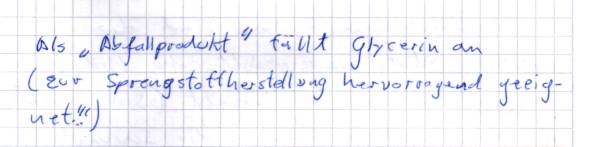 Als „Abfallprodukt" fällt Glycerin an
(zur Sprengstoffherstellung hervorragend geeig-
net!!")